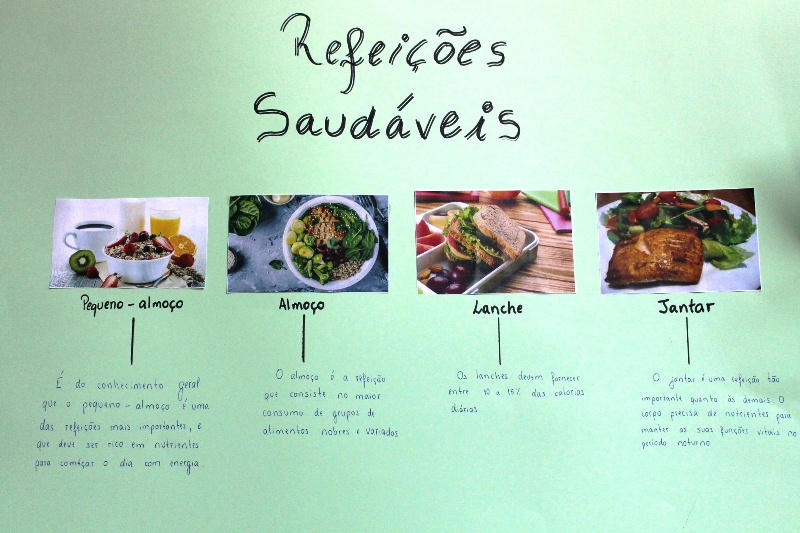 Refeições
Saudáveis
Pequeno-almoço
É do conhecimento geral
que o pequeno-almoço é uma
das refeições mais importantes, e
que deve ser rico em nutrientes
para começar o dia com energia.
Almoço
O almoço é a refeição
que consiste no maior
consumo de grupos de
alimentos nobres e variados
Lanche
Os lanches devem fornecer
entre 10 a 15% das calorias
diárias
Jantar
O jantar é uma refeição tão
importante quanto às demais. O
corpo precisa de nutrientes para
manter as suas funções vitais no
período noturno